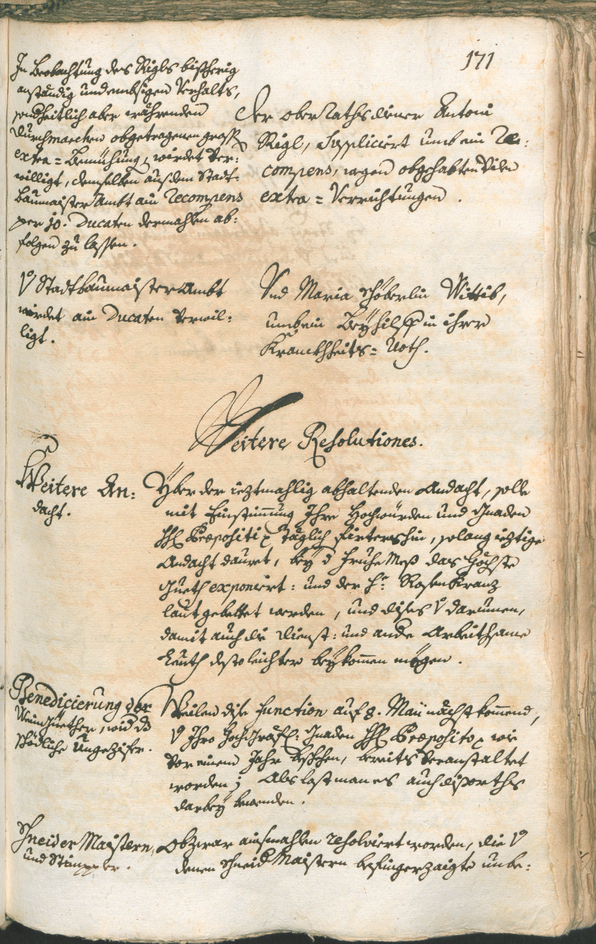 171
In Beobachtung des Rigls bisherig
anständig und embsigen Verhalts,
sonderheitlich aber währenden
Durchmarchen obgetragenen gross
extra=Bemühung, würdet ver:
williget, demselben aus dem Stadt-
baumaister Ambt ain Recompens
per 10. Ducaten dermahlen ab:
folgen zu lassen.
Der ober Rathsdiener Antoni
Rigl, supplicirt umb ein Re:
compens, wegen obgehabten vilen
extra=Verrichtungen.
Stadtbaumaister Ambt
würdet ain Ducaten verwil:
ligt.
Und Maria Schöberlin Wittib,
umb ein Beyhilff in ihrer
Kranckheits=Noth.
Weitere Resolutiones.
Weitere An:
dacht.
Yber der ieztmahlig abhaltenden Andacht, solle
mit Einstimmung Ihro Hochwürden und Gnaden
Praepositi täglich firtershin, solang iezige
Andacht dauret, bey d Fruhe Mess das Höchste
Gueth exponiert: und der H: Rosenkranz
laut gebettet werden, und dises darumen,
damit auch die dienst: und andre Arbeithsame
Leuth desto leichter beykommen mögen.
Benedicierung der
Weingüether, wid die
schödliche Ungezifer.
Weilen dise Function auf 8. Maii nächstkommend,
Ihro Hochgräfl: Gnaden Praeposito wie
vor einem Jahr beschehen, bereits veranstaltet
worden; Als last man es auch disorths
darbey bewenden.
Schneider Maistern,
und Stimpler.
Obzwar ainsmahlen resolviert worden, die
denen Schneid Maistern besingerzaigte unbe: